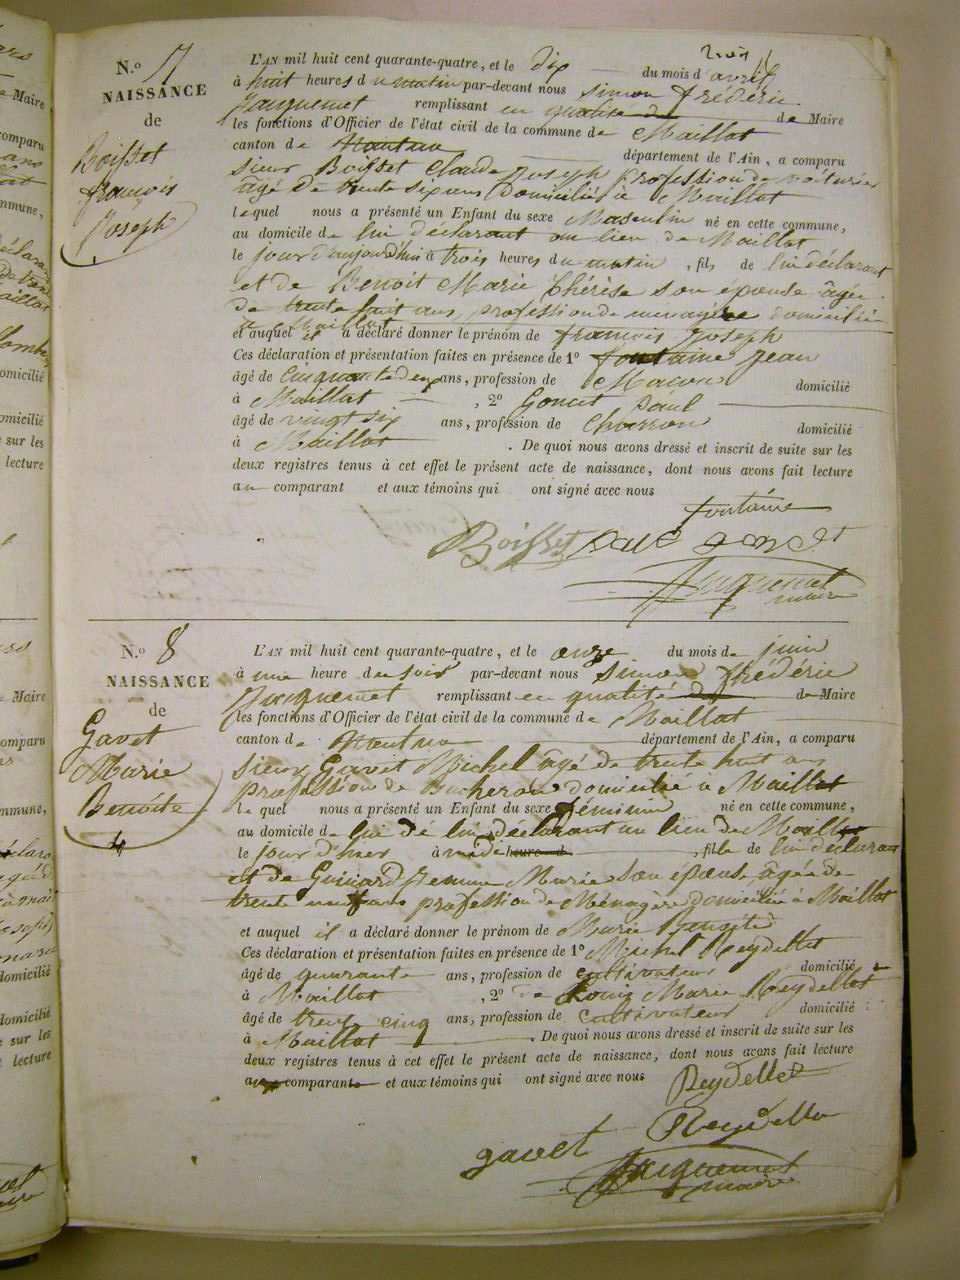 N.o 7
NAISSANCE
de
Boisset
françois
Joseph
L'AN mil huit cent quarante-quatre, et le dix du mois d'avril
à huit heures du matin par-devant nous simon frédéric
Jacquemet remplissant en qualité de Maire
les fonctions d'Officier de l'état civil de la commune de Maillat
canton de Nantua département de l'Ain, a comparu
sieur Boisset Claude Joseph profession de voiturier
agé de trente six ans domicilié à Maillat
lequel nous a présenté un Enfant du sexe Masculin né en cette commune,
au domicile de lui déclarant au lieu de Maillat
le jour d'aujourd'hui à trois heures du matin, fils de lui déclarant
et de Benoit Marie thérèse son épouse âgée
de trente huit ans, profession de menagère domiciliée
à Maillat
et auquel il a déclaré donner le prénom de françois Joseph
Ces déclaration et présentation faites en présence de 1o fontaine Jean
âgé de Cinquante deux ans, profession de Macon domicilié
à Maillat, 2o Goncet paul
âgé de vingt six ans, profession de Charron domicilié
à Maillat. De quoi nous avons dressé et inscrit de suite sur les
deux registres tenus à cet effet le présent acte de naissance, dont nous avons fait lecture
au comparant et aux témoins qui ont signé avec nous
fontaine
Boisset
Jacquemet
maire
N.o 8
NAISSANCE
de
Gavet
Marie
Benoite
L'AN mil huit cent quarante-quatre, et le onze du mois de juin
à une heure du soir par-devant nous simon frédéric
Jacquemet remplissant en qualité de Maire
les fonctions d'Officier de l'état civil de la commune de Maillat
canton de Nantua département de l'Ain, a comparu
sieur Gavet Michel âgé de trente huit ans
profession de Bucheron domicilié à Maillat
lequel nous a présenté un Enfant du sexe féminin né en cette commune,
au domicile de lui de lui déclarant au lieu de Maillat
le jour d'hier à midi heure d, fille de lui déclarant
et de Guinard Jemme Marie son épouse, âgée de
trente neuf ans profession de Ménagère domiciliée à Maillat
et auquel il a déclaré donner le prénom de Marie Benoite
Ces déclaration et présentation faites en présence de 1o Michel Reydellet
âgé de quarante ans, profession de cultivateur domicilié
à Maillat, 2o de Louis Marie Reydellet
âgé de trente cinq ans, profession de cultivateur domicilié
à Maillat. De quoi nous avons dressé et inscrit de suite sur les
deux registres tenus à cet effet le présent acte de naissance, dont nous avons fait lecture
au comparant et aux témoins qui ont signé avec nous
Reydellet
gavet Reydellet
Jacquemet
maire